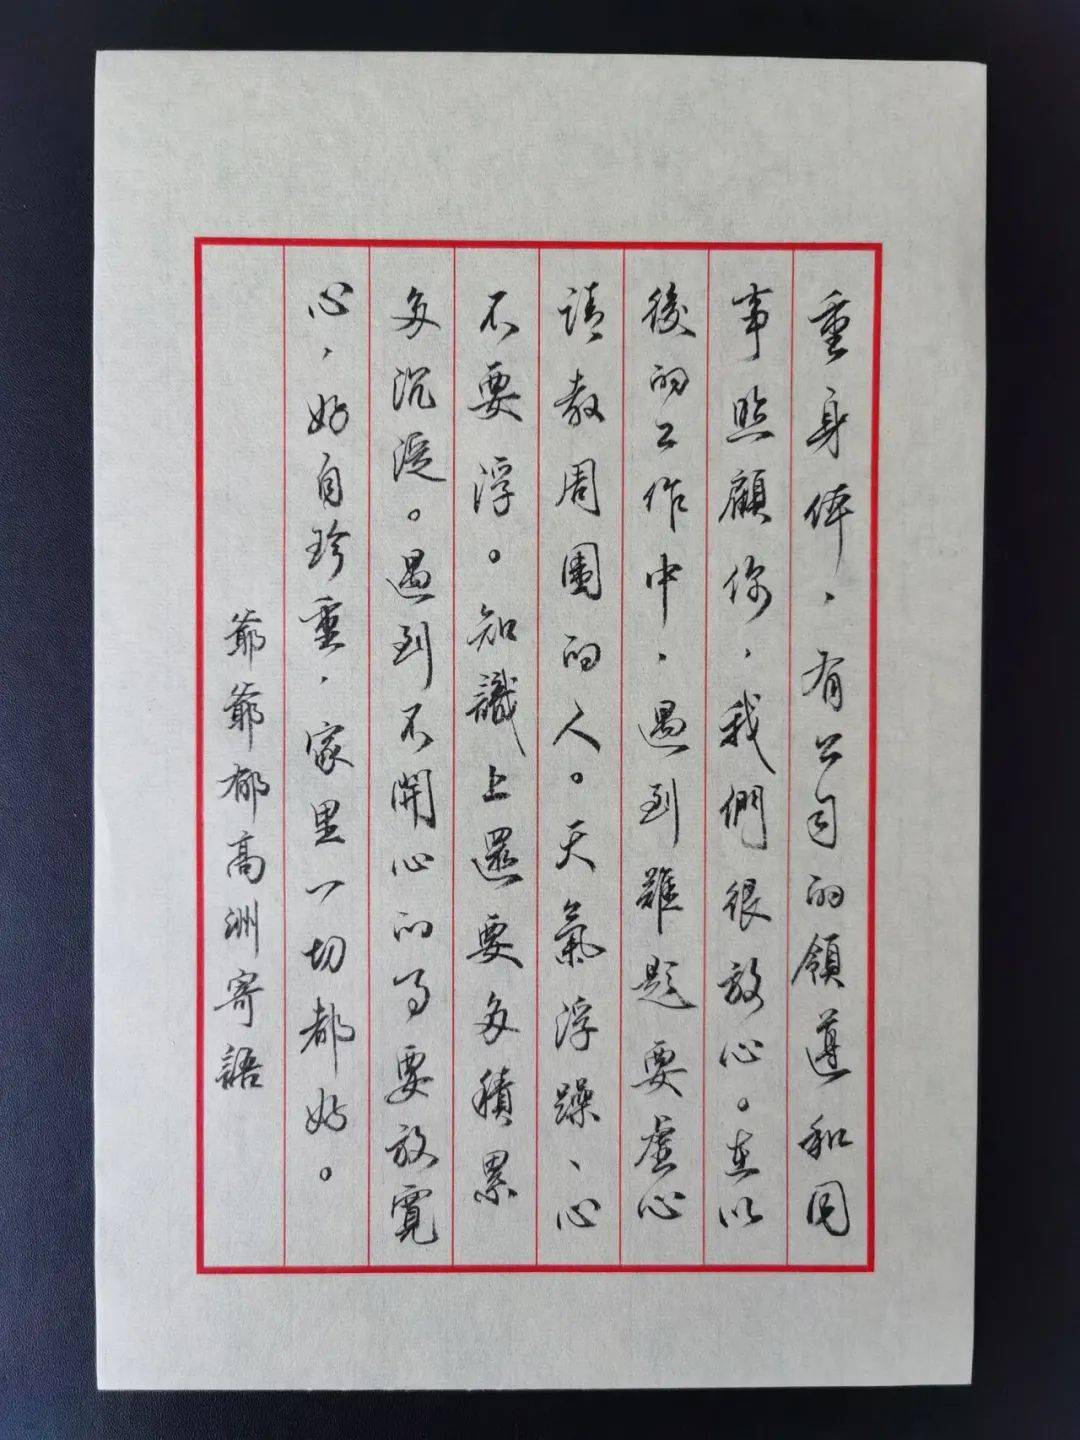 重身体、有公司的領導和同
事照顧你，我們很放心。在以
後的工作中，遇到難題要虚心
請教周圍的人。天氣浮躁、心
不要浮。知識上還要多積累
多沉淀。遇到不開心的事要放寬
心，好自珍重，家里一切都好。
爺爺郁高洲寄語